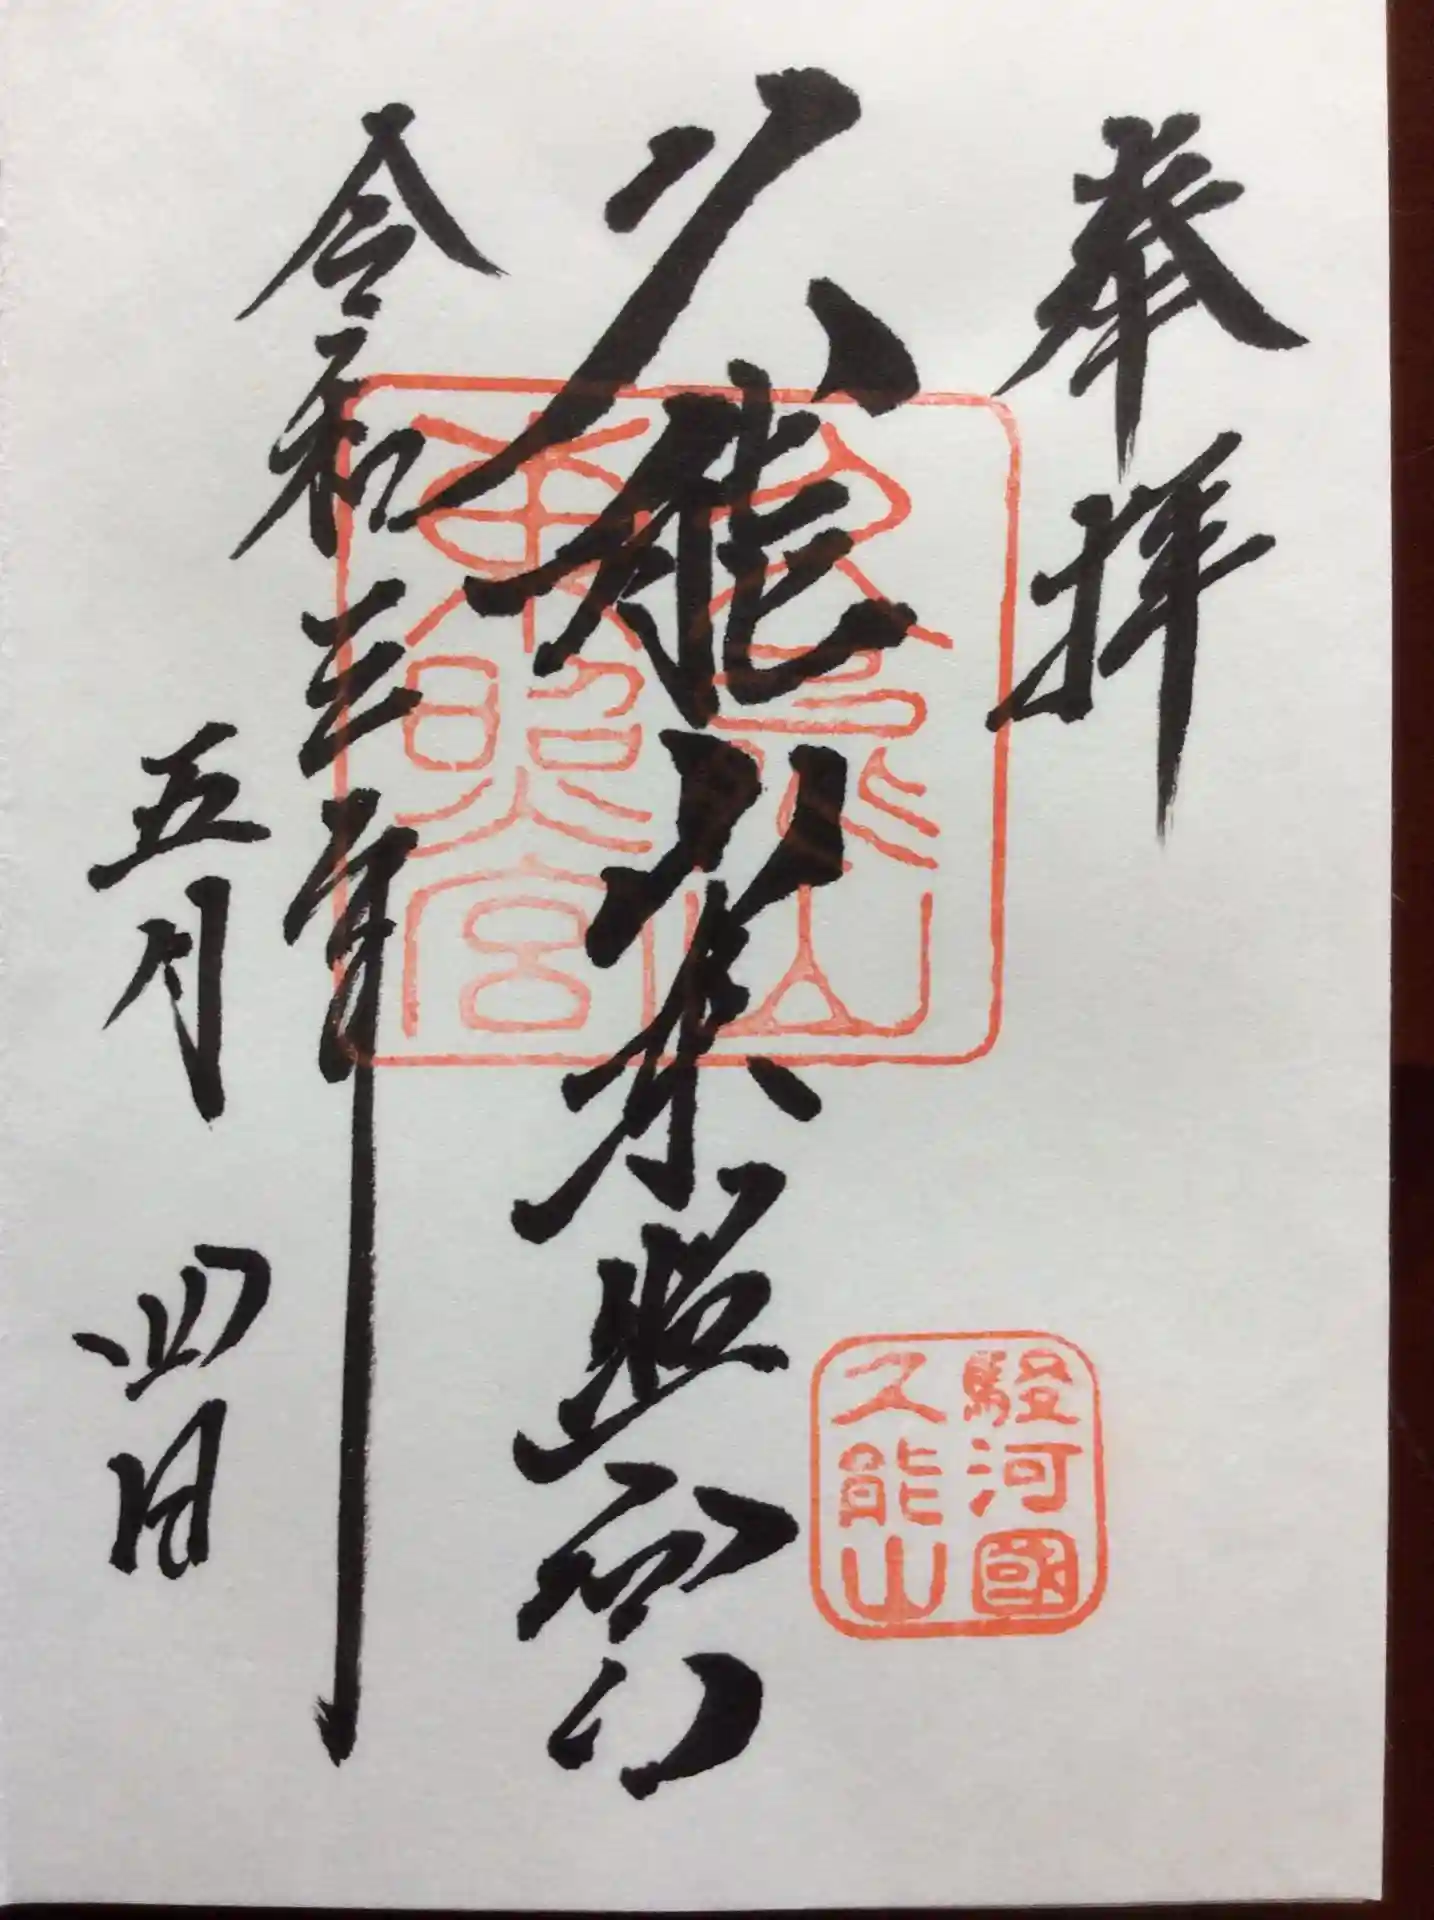 奉拝
駿河國
久能山
久能山東照宮
久能山
東照宮
令和三年
五月四日